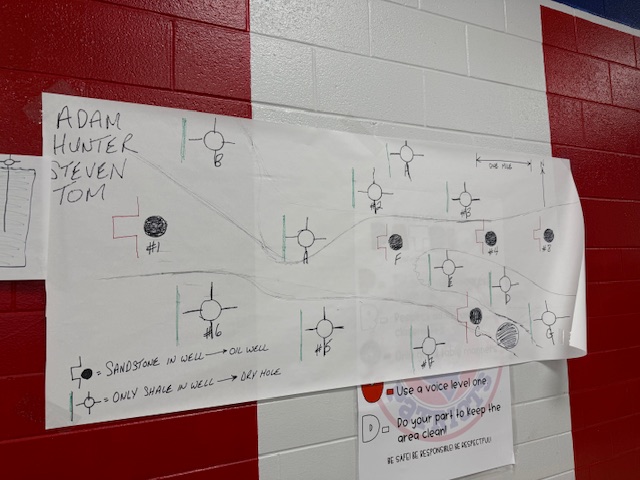 ADAM
HUNTER
STEVEN
TOM
B
A
ONE MILE
N
#2
#3
#1
A
F
#4
#3
E
D
#6
#5
C
G
#7
= SANDSTONE IN WELL → OIL WELL
= ONLY SHALE IN WELL → DRY HOLE
= Use a voice level one
D = Do your part to keep the
area clean!
BE SAFE! BE RESPONSIBLE! BE RESPECTFUL!